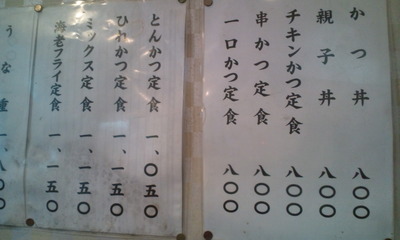 かつ丼 八〇〇
親子丼 八〇〇
チキンかつ定食 八〇〇
串かつ定食 八〇〇
一口かつ定食 八〇〇
とんかつ定食 一、〇五〇
ひれかつ定食 一、一五〇
ミックス定食 一、一五〇
海老フライ定食 一、一五〇
うな重 一、八〇〇